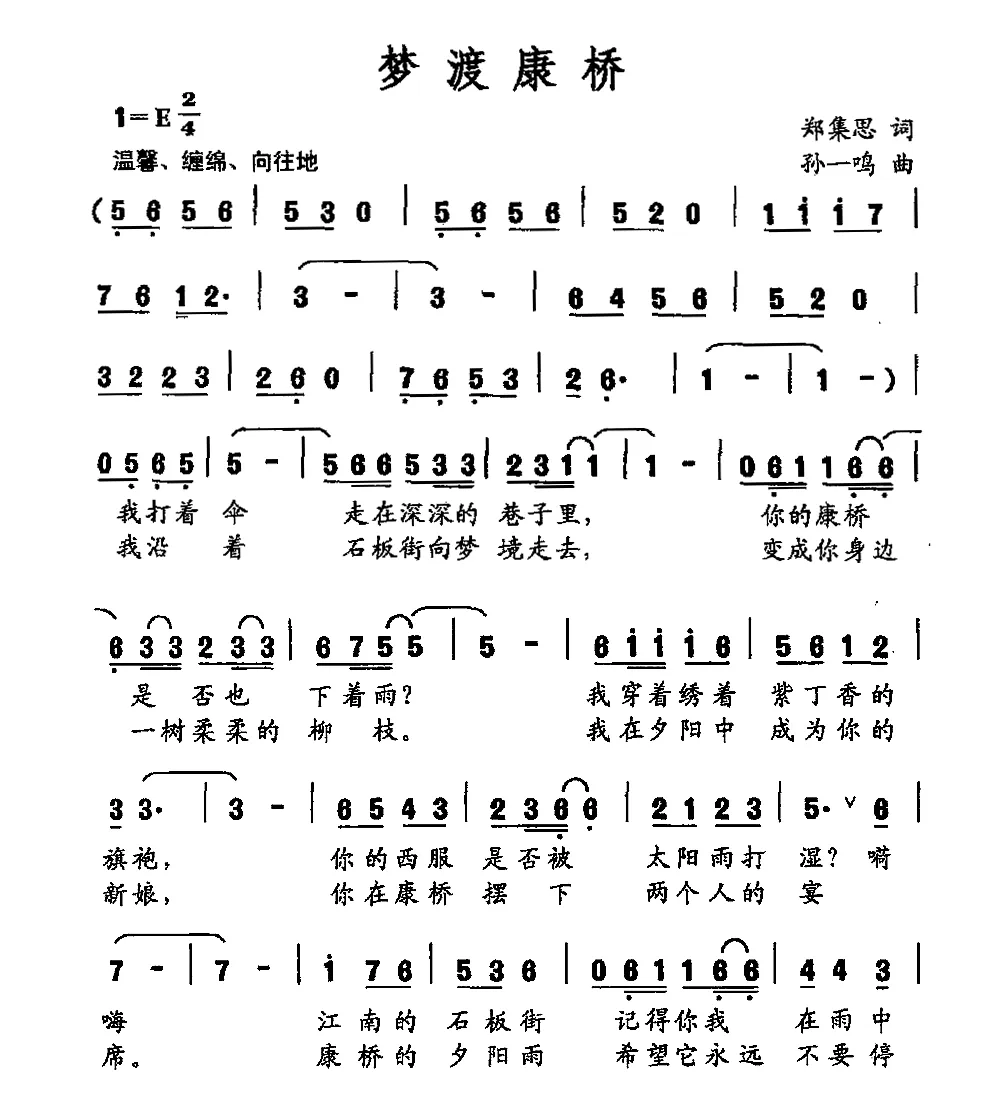 梦渡康桥
1=E 2/4
郑集思 词
温馨、缠绵、向往地
孙一鸣 曲
(5 6 5 6 | 5 3 0 | 5 6 5 6 | 5 2 0 | 1 1 1 7 |
7 6 1 2· | 3 - | 3 - | 6 4 5 6 | 5 2 0 |
3 2 2 3 | 2 6 0 | 7 6 5 3 | 2 6· | 1 - | 1 -) |
0 5 6 5 | 5 - | 5 6 6 5 3 3 | 2 3 1 1 | 1 - | 0 6 1 1 6 6 |
我打着 伞 走在深深的 巷子里, 你的康桥
我沿 着 石板街向梦 境走去, 变成你身边
6 3 3 2 3 3 | 6 7 5 5 | 5 - | 6 1 1 1 6 | 5 6 1 2 |
是 否也 下着雨? 我穿着绣着 紫丁香的
一树柔柔的 柳 枝。 我在夕阳中 成为你的
3 3· | 3 - | 6 5 4 3 | 2 3 6 6 | 2 1 2 3 | 5· ∨ 6 |
旗袍, 你的西服 是否被 太阳雨打 湿? 嗬
新娘, 你在康桥 摆 下 两个人的 宴
7 - | 7 - | 1 7 6 | 5 3 6 | 0 6 1 1 6 6 | 4 4 3 |
嗨 江南的 石板街 记得你我 在雨中
席。 康桥的 夕阳雨 希望它永远 不要停